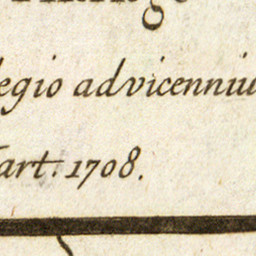 egio advicenniu
art. 1708.